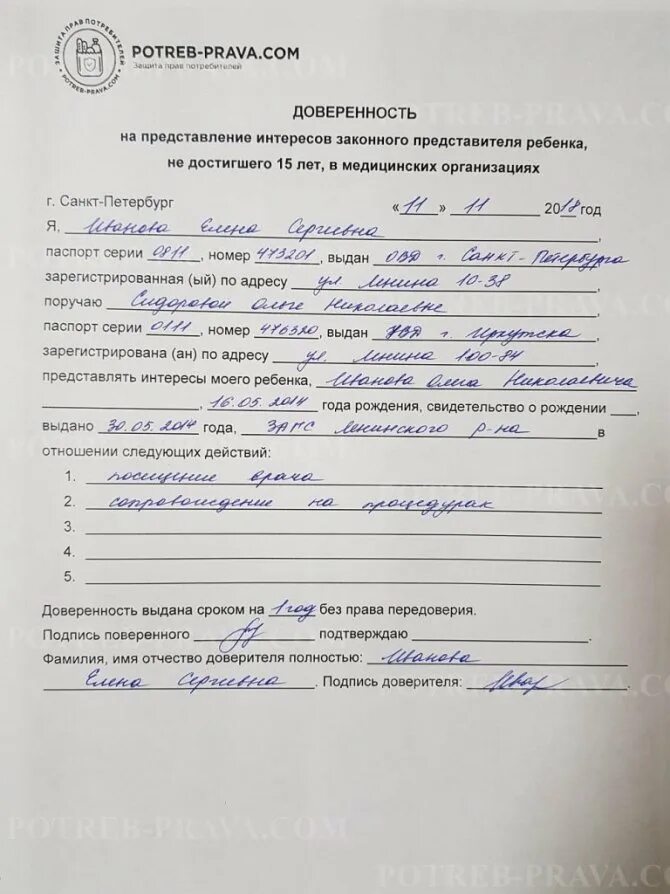 ЗАЩИТА ПРАВ ПОТРЕБИТЕЛЕЙ
POTREB-PRAVA.COM
POTREB-PRAVA.COM
Защита прав потребителей
ДОВЕРЕННОСТЬ
на представление интересов законного представителя ребенка,
не достигшего 15 лет, в медицинских организациях
г. Санкт-Петербург «11» 11 2018 год
Я, Иванова Елена Сергиевна,
паспорт серии 0811, номер 473201, выдан ОВД г. Санкт-Петербурга
зарегистрированная (ый) по адресу ул. Ленина 10-38,
поручаю Сидоровой Ольге Николаевне
паспорт серии 0111, номер 476320, выдан ОВД г. Иркутска,
зарегистрирована (ан) по адресу ул. Ленина 100-84,
представлять интересы моего ребенка, Иванова Олега Николаевича
, 16.05.2014 года рождения, свидетельство о рождении ,
выдано 30.05.2014 года, ЗАГС Ленинского р-на в
отношении следующих действий:
1. посищение врача
2. сопровождение на процедурах
3.
4.
5.
Доверенность выдана сроком на 1 год без права передоверия.
Подпись поверенного подтверждаю .
Фамилия, имя отчество доверителя полностью: Иванова
Елена Сергиевна. Подпись доверителя: Ивар
POTREB-PRAVA.COM